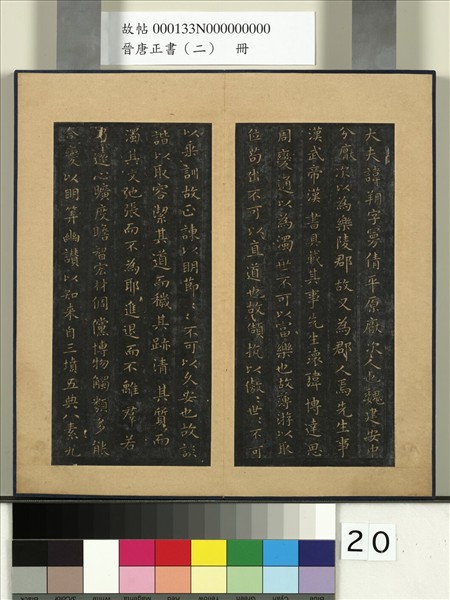 故帖 000133N000000000
晉唐正書（二） 冊
大夫諱朔字曼倩平原厭次人也魏建安中
分厭次以為樂陵郡故又為郡人焉先生事
漢武帝漢書具載其事先生瓌瑋博達思
周變通以為濁世不可以富樂也故薄游以取
位苟出不可以直道也故頡抗以傲〻世〻不可
以垂訓故正諫以明節〻不可以久安也故談
諧以取容潔其道而穢其跡清其質而
濁其文弛張而不為耶進退而不離群若
遠心曠度贍智宏材倜儻博物觸類多能
合變以明筭幽讚以知來自三墳五典八索九
20